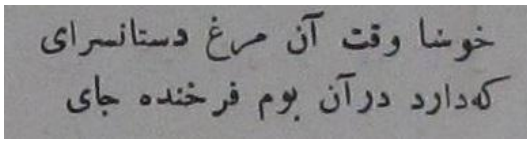 خوشا وقت آن مرغ دستانسرای
که‌دارد درآن بوم فرخنده جای